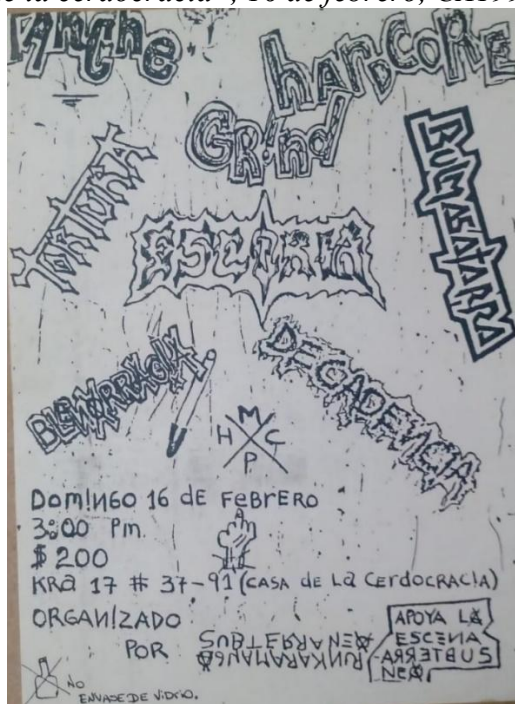 e la cerdocracia", 16 de febrero,
PArCHe
HARDCORE
GRind
TORTURA
ESCORIA
BLENORRAGIA
DECADENCIA
M
H C
P
DomiNGO 16 DE FeBRERO
3:00 Pm.
$ 200
KRa 17 # 37-91 (CASA DE LA CerDOCRACIA)
ORGANIZADO
POR
SUBTERRANEA
PUNKARAMANGA
APOYA LA
ESCENA
SUBTERRA-
NEA
NO
ENVASE DE VIDRIO.